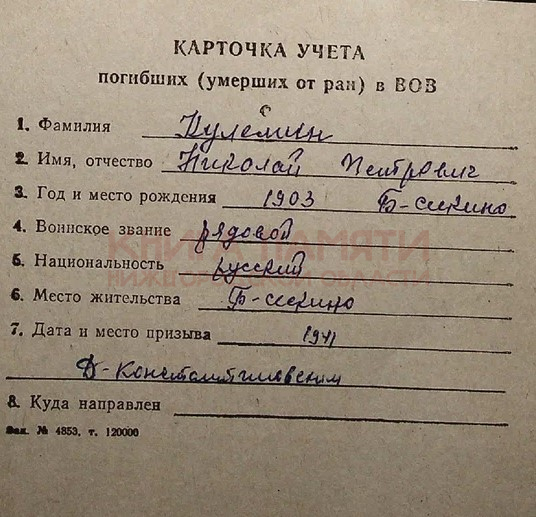 КАРТОЧКА УЧЕТА
погибших (умерших от ран) в ВОВ
1. Фамилия Кулемин
2. Имя, отчество Николай Петрович
3. Год и место рождения 1903 Б-Сескино
4. Воинское звание рядовой
КНИГА ПАМЯТИ
НИЖЕГОРОДСКОЙ ОБЛАСТИ
5. Национальность русский
6. Место жительства Б-Сескино
7. Дата и место призыва 1941
Д-Константиновским
8. Куда направлен
Зак. № 4853, т. 120000